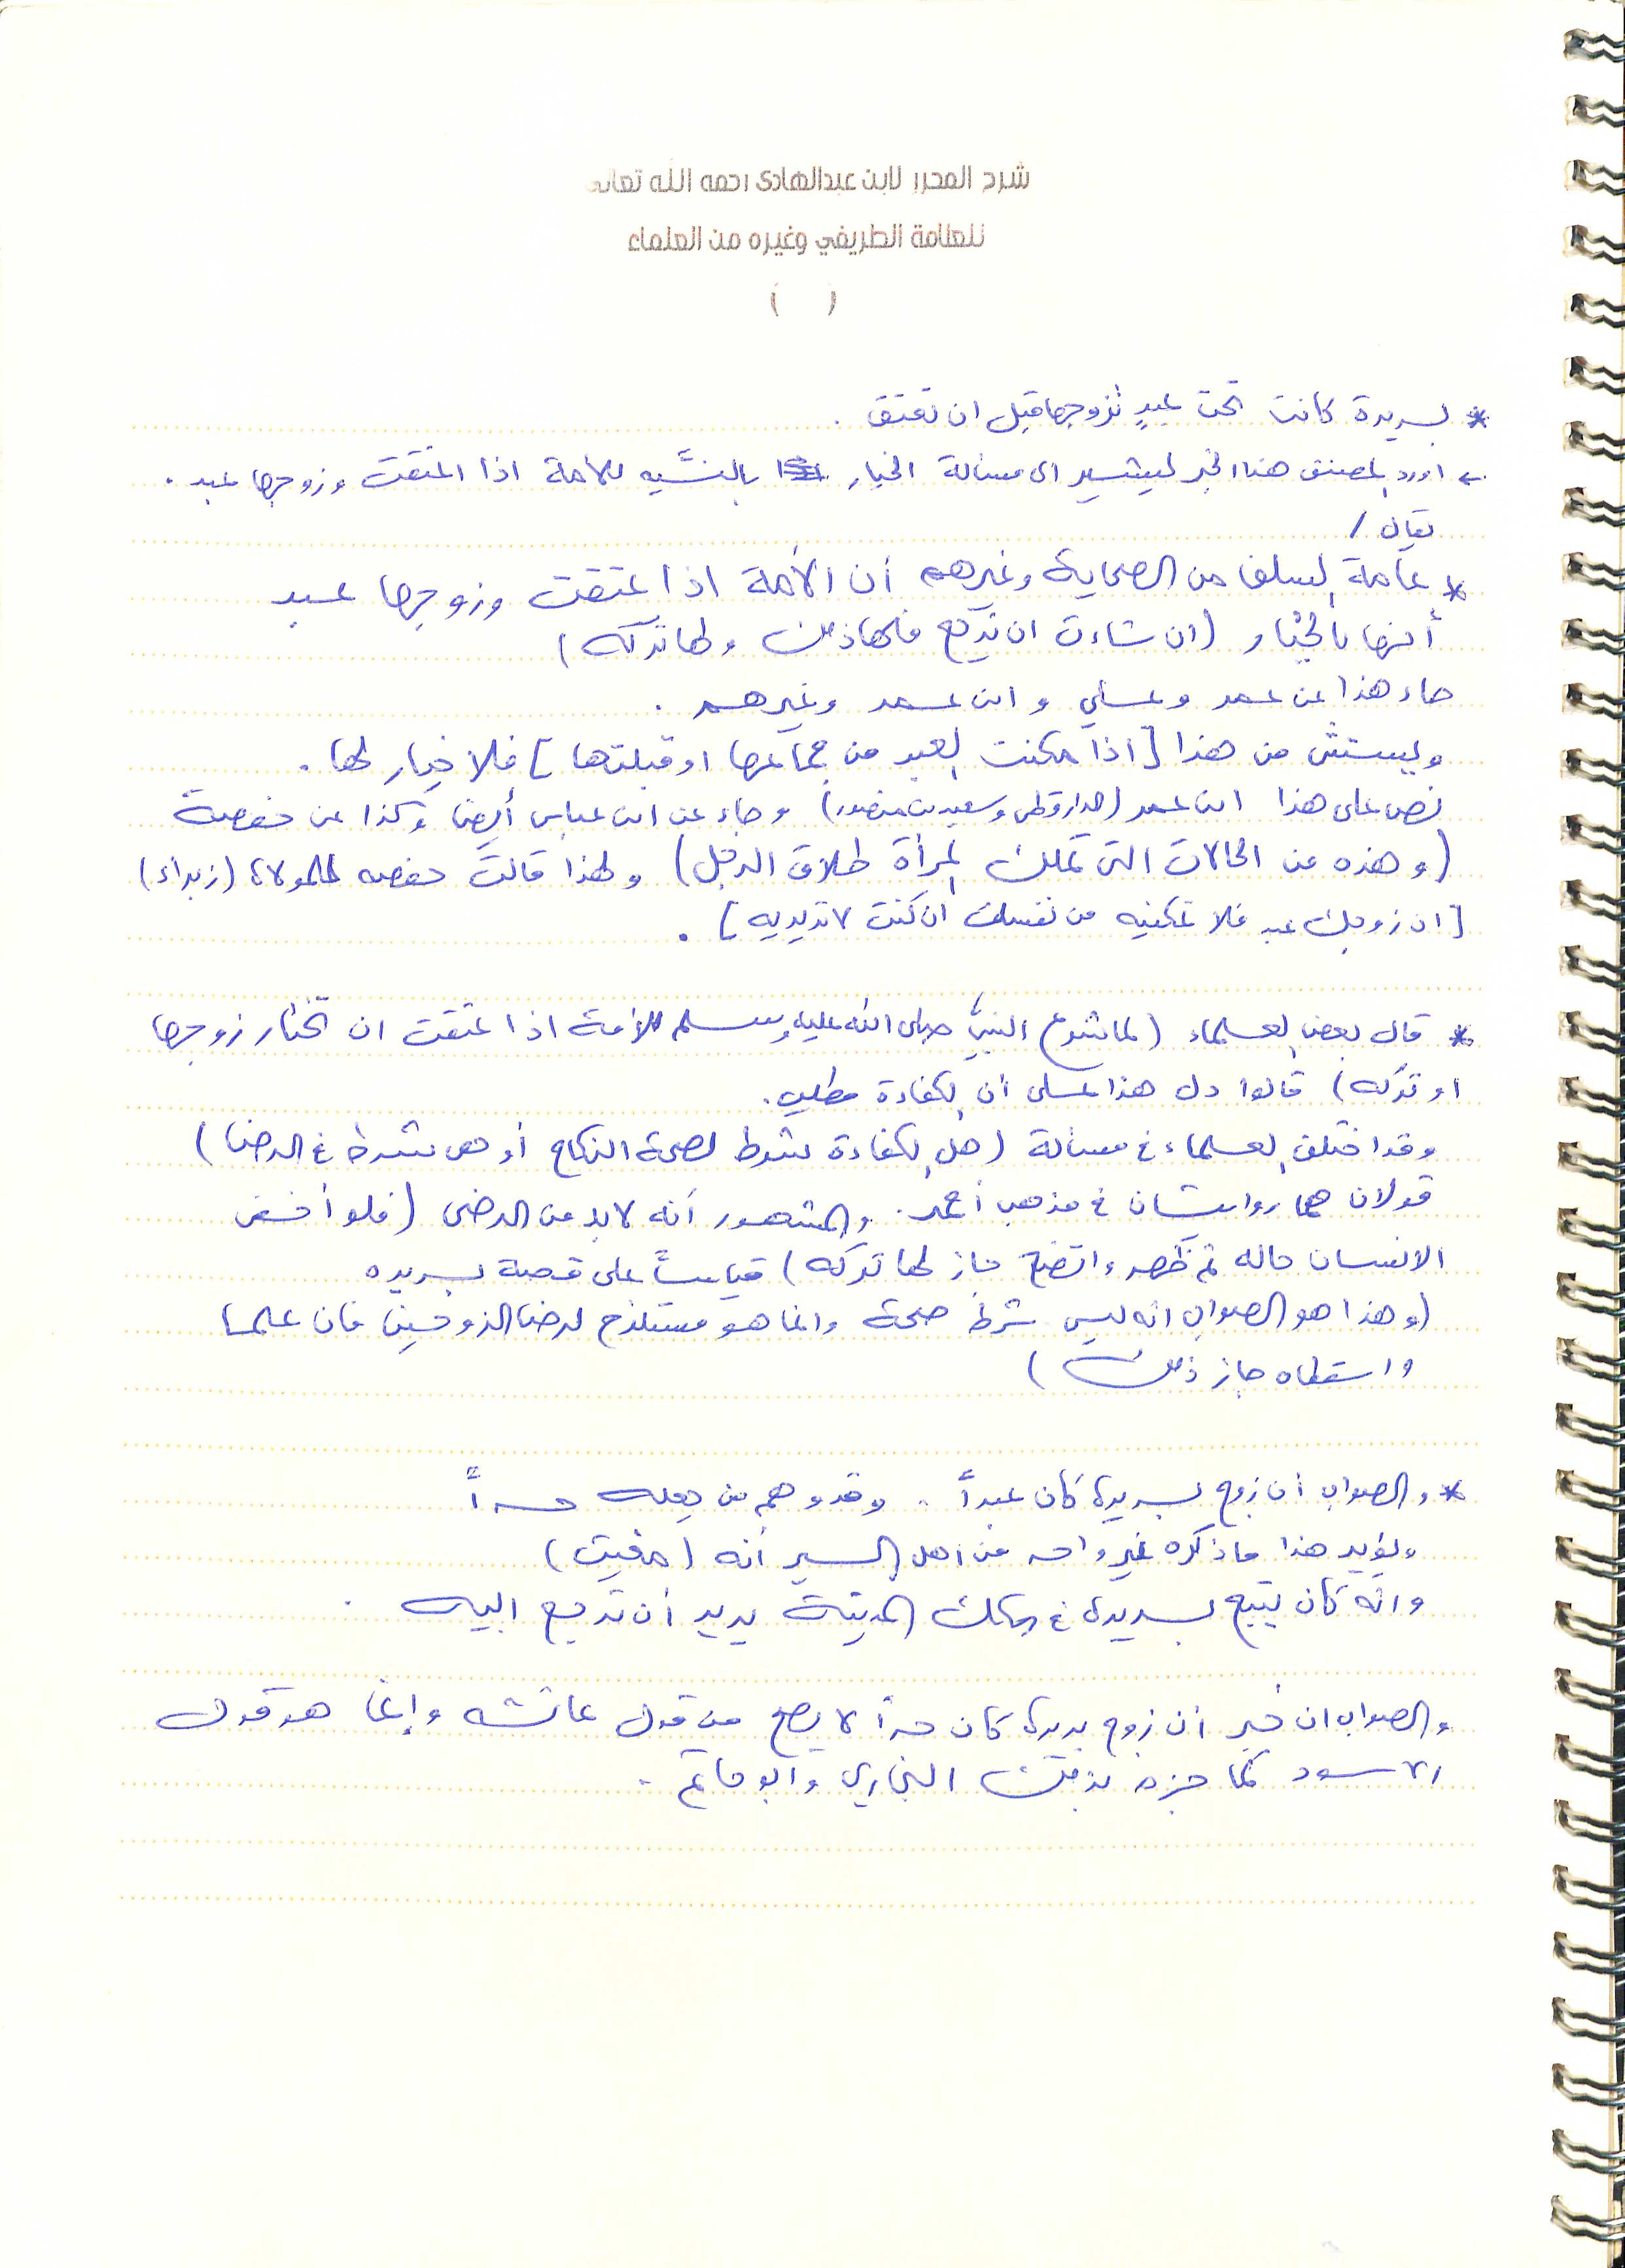 شرح المحرر لابن عبدالهادي رحمه الله تعالى
للعلامة الطريفي وغيره من العلماء
( )
* بريرة كانت تحت عبدٍ تزوجها قبل ان تعتق .
← اورد المصنف هذا الخبر ليشير الى مسألة الخيار بالنسبه للامة اذا اعتقت وزوجها عبد .
يقال /
* عامة السلف من الصحابة وغيرهم أن الأمة اذا عتقت وزوجها عبد
أنها بالخيار (ان شاءت ان ترجع فلها ذلك ولها تركه)
جاء هذا عن عمر وعلي وابن عمر وغيرهم .
ويستثنى من هذا [اذا مكنت العبد من جماعها او قبلتها] فلا خيار لها .
نص على هذا ابن عمر (الدارقطني وسعيد بن منصور) وجاء عن ابن عباس أيضا وكذا عن حفصة
(وهذه من الحالات التي تملك المرأة طلاق الرجل) ولهذا قالت حفصه لمولاة (زبراء)
[ان زوجك عبد فلا تمكنيه من نفسك ان كنت لا تريديه] .
* قال بعض العلماء (لما شرع النبي صلى الله عليه وسلم للأمة اذا عتقت ان تختار زوجها
او تركه) قالوا دل هذا على أن الكفاءة مطلب .
وقد اختلف العلماء في مسألة (هل الكفاءة شرط لصحة النكاح أو هي شرط في الرضا)
قولان هما روايتان في مذهب أحمد . والمشهور أنه لابد من الرضى (فلو أخفى
الانسان حاله ثم ظهر واتضح جاز لها تركه) قياساً على قصة بريره
(وهذا هو الصواب انه ليس شرط صحة وانما هو مستلزم لرضا الزوجين فان علما
واسقطاه جاز ذلك)
* والصواب أن زوج بريرة كان عبداً . وقد وهم من جعله حراً
ويؤيد هذا ما ذكره غير واحد من اهل السير أنه (مغيث)
وانه كان يتبع بريرة في سكك المدينة يريد أن ترجع اليه .
والصواب ان خبر أن زوج بريرة كان حراً لا يصح من قول عائشه وإنما هو قول
الاسود كما جزم بذلك البخاري وابو حاتم .